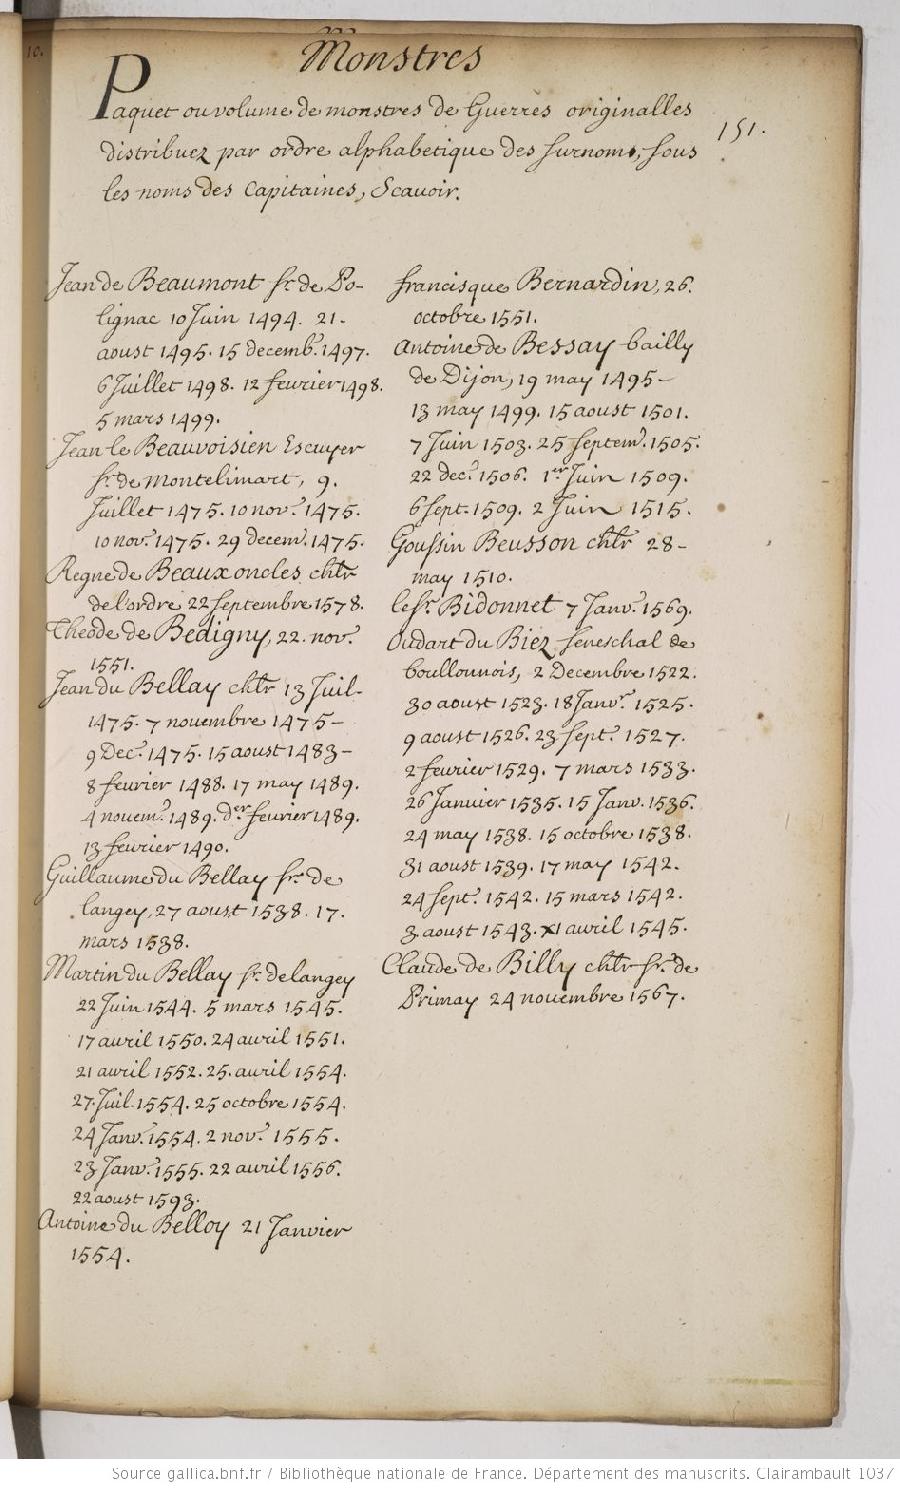 10.
Monstres
Paquet ou volume de monstres de Guerres originalles
151.
distribuez par ordre alphabetique des surnoms, sous
les noms des Capitaines, Scavoir.
Jean de Beaumont sr. de Po-
lignac 10 Juin 1494. 21.
aoust 1495. 15 decemb.e 1497.
6 Juillet 1498. 12 fevrier 1498.
5 mars 1499.
Jean le Beauvoisien Escuyer
sr. de montelimart, 9.
Juillet 1475. 10 nov.e 1475.
10 nov.e 1475. 29 decem.e 1475.
Regne de Beauxoncles chlr
de l'ordre 22 septembre 1578.
Theode de Bedigny, 22. nov.e
1551.
Jean du Bellay chlr 13 Juil-
1475. 7 novembre 1475-
9 Dec.e 1475. 15 aoust 1483-
8 fevrier 1488. 17 may 1489.
4 novem.e 1489. der. fevrier 1489.
13 fevrier 1490.
Guillaume du Bellay sr. de
langey, 27 aoust 1538. 17.
mars 1538.
Martin du Bellay sr. de langey
22 Juin 1544. 5 mars 1545.
17 avril 1550. 24 avril 1551.
21 avril 1552. 25. avril 1554.
27. Juil. 1554. 25 octobre 1554.
24 Janv.e 1554. 2 nov.e 1555.
23 Janv.e 1555. 22 avril 1556.
22 aoust 1593.
Antoine du Belloy 21 Janvier
1554.
francisque Bernardin, 26.
octobre 1551.
Antoine de Bessay bailly
de Dijon, 19 may 1495-
13 may 1499. 15 aoust 1501.
7 Juin 1503. 25 Septem.e 1505.
22 dec.e 1506. 1er Juin 1509.
6 sept. 1509. 2 Juin 1515.
Goussin Beusson chlr 28-
may 1510.
le sr. Bidonnet 7 Janv.e 1569.
Oudart du Biez seneschal de
boullounois, 2 Decembre 1522.
30 aoust 1523. 18 Janv.r 1525.
9 aoust 1526. 23 sept.e 1527.
2 fevrier 1529. 7 mars 1533.
26 Janvier 1535. 15 Janv. 1536.
24 may 1538. 15 octobre 1538.
31 aoust 1539. 17 may 1542.
24 sept.e 1542. 15 mars 1542.
3 aoust 1543. xi avril 1545.
Claude de Billy chlr sr. de
Primay 24 novembre 1567.
Source gallica.bnf.fr / Bibliothèque nationale de France. Département des manuscrits. Clairambault 1037